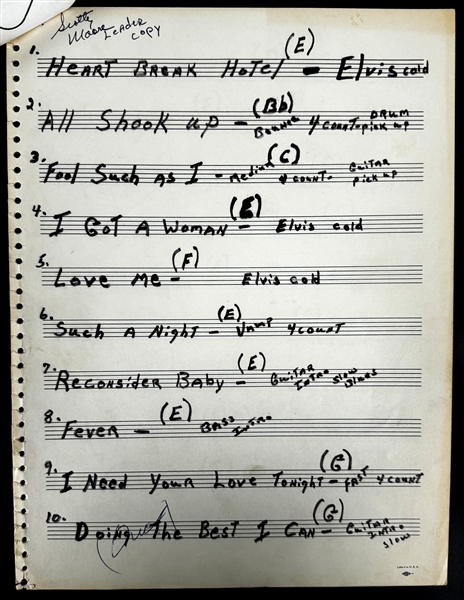 Scotty
Moore LEADER
COPY
1. HEART BREAK HOTEl (E) - Elvis cold
2. All Shook up - (Bb) Bounce 4 COUNT- DRUM pick up
3. Fool Such As I - Medium (C) 4 COUNT- GUITAR pick up
4. I GOT A WOMAN - (E) Elvis cold
5. Love Me - (F) Elvis cold
6. Such A Night - (E) VAMP 4 COUNT
7. RECONSIDER BABY - (E) GUITAR INTRO SLOW Blues
8. FEVER - (E) BASS INTRO
9. I NEED YOUR LOVE TONIGHT - (G) FAST 4 COUNT
10. Doing The BEST I CAN - (G) GUITAR INTRO SLOW